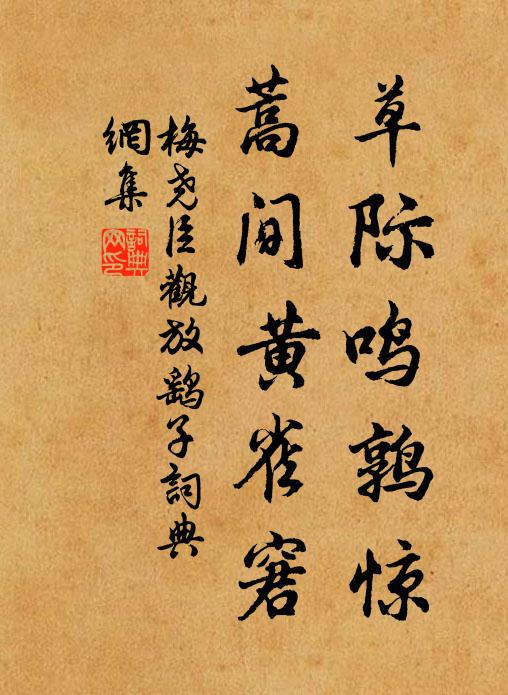 草际鸣鹑惊
蒿间黄雀窘
梅尧臣觀放鹞子詞典
網集
詞典网印